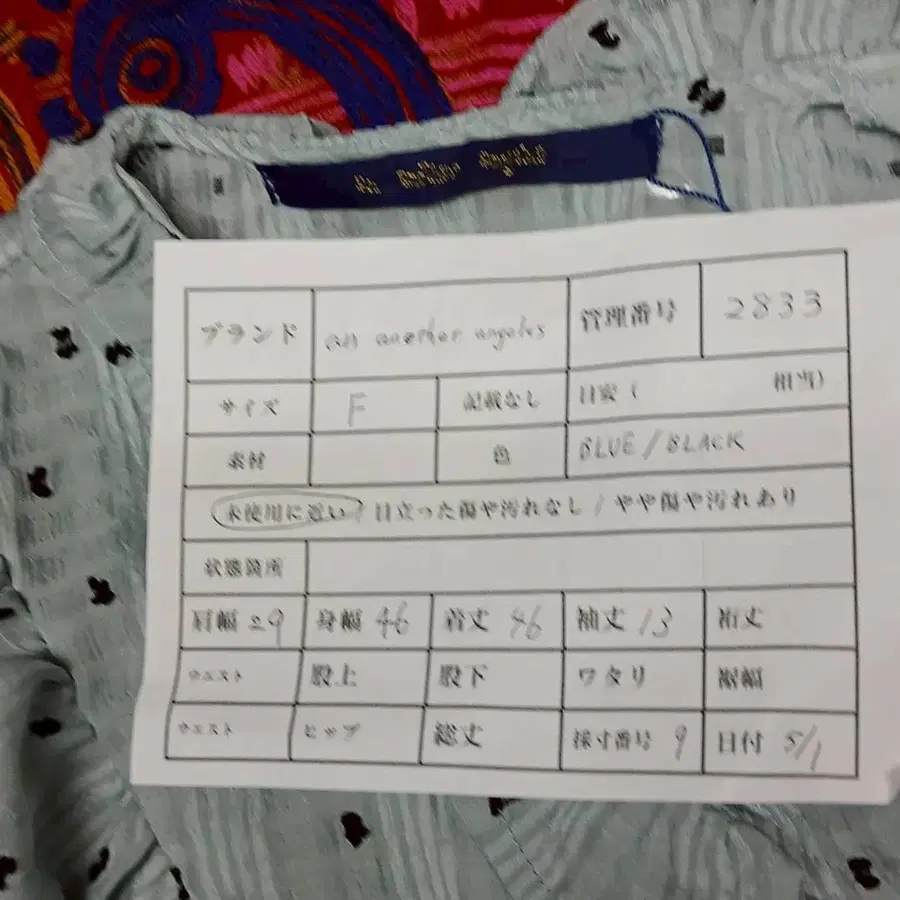 ブランド an another angelus 管理番号 2833
サイズ F 記載なし 目安( 相当)
素材 色 BLUE/BLACK
未使用に近い/目立った傷や汚れなし/やや傷や汚れあり
状態箇所
肩幅 29 身幅 46 着丈 46 袖丈 13 裄丈
ウエスト 股上 股下 ワタリ 裾幅
ウエスト ヒップ 総丈 採寸番号 9 日付 5/1